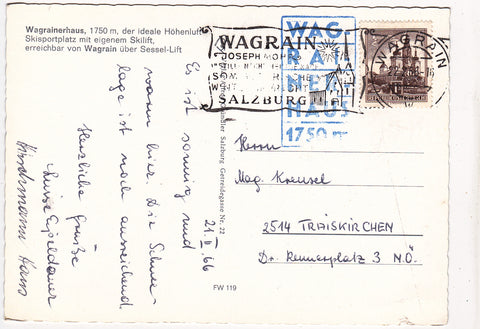 Wagrainerhaus, 1750 m, der ideale Höhenluft-
Skisportplatz mit eigenem Skilift,
erreichbar von Wagrain über Sessel-Lift
WAGRAIN
JOSEPH MOHR
SALZBURG
WAG-
RAI-
NER
HAUS
1750 m
WAGRAIN
REPUBLIK ÖSTERREICH
Salzburg Getreidegasse Nr. 22
FW 119
21.II.66
Es ist sonnig und
warm hier. Die Schnee-
lage ist noch ausreichend.
Herzliche Grüße
Luise
Hans
Herrn
Mag. Kreusel
2514 TRAISKIRCHEN
Dr. Rennerplatz 3 N.Ö.